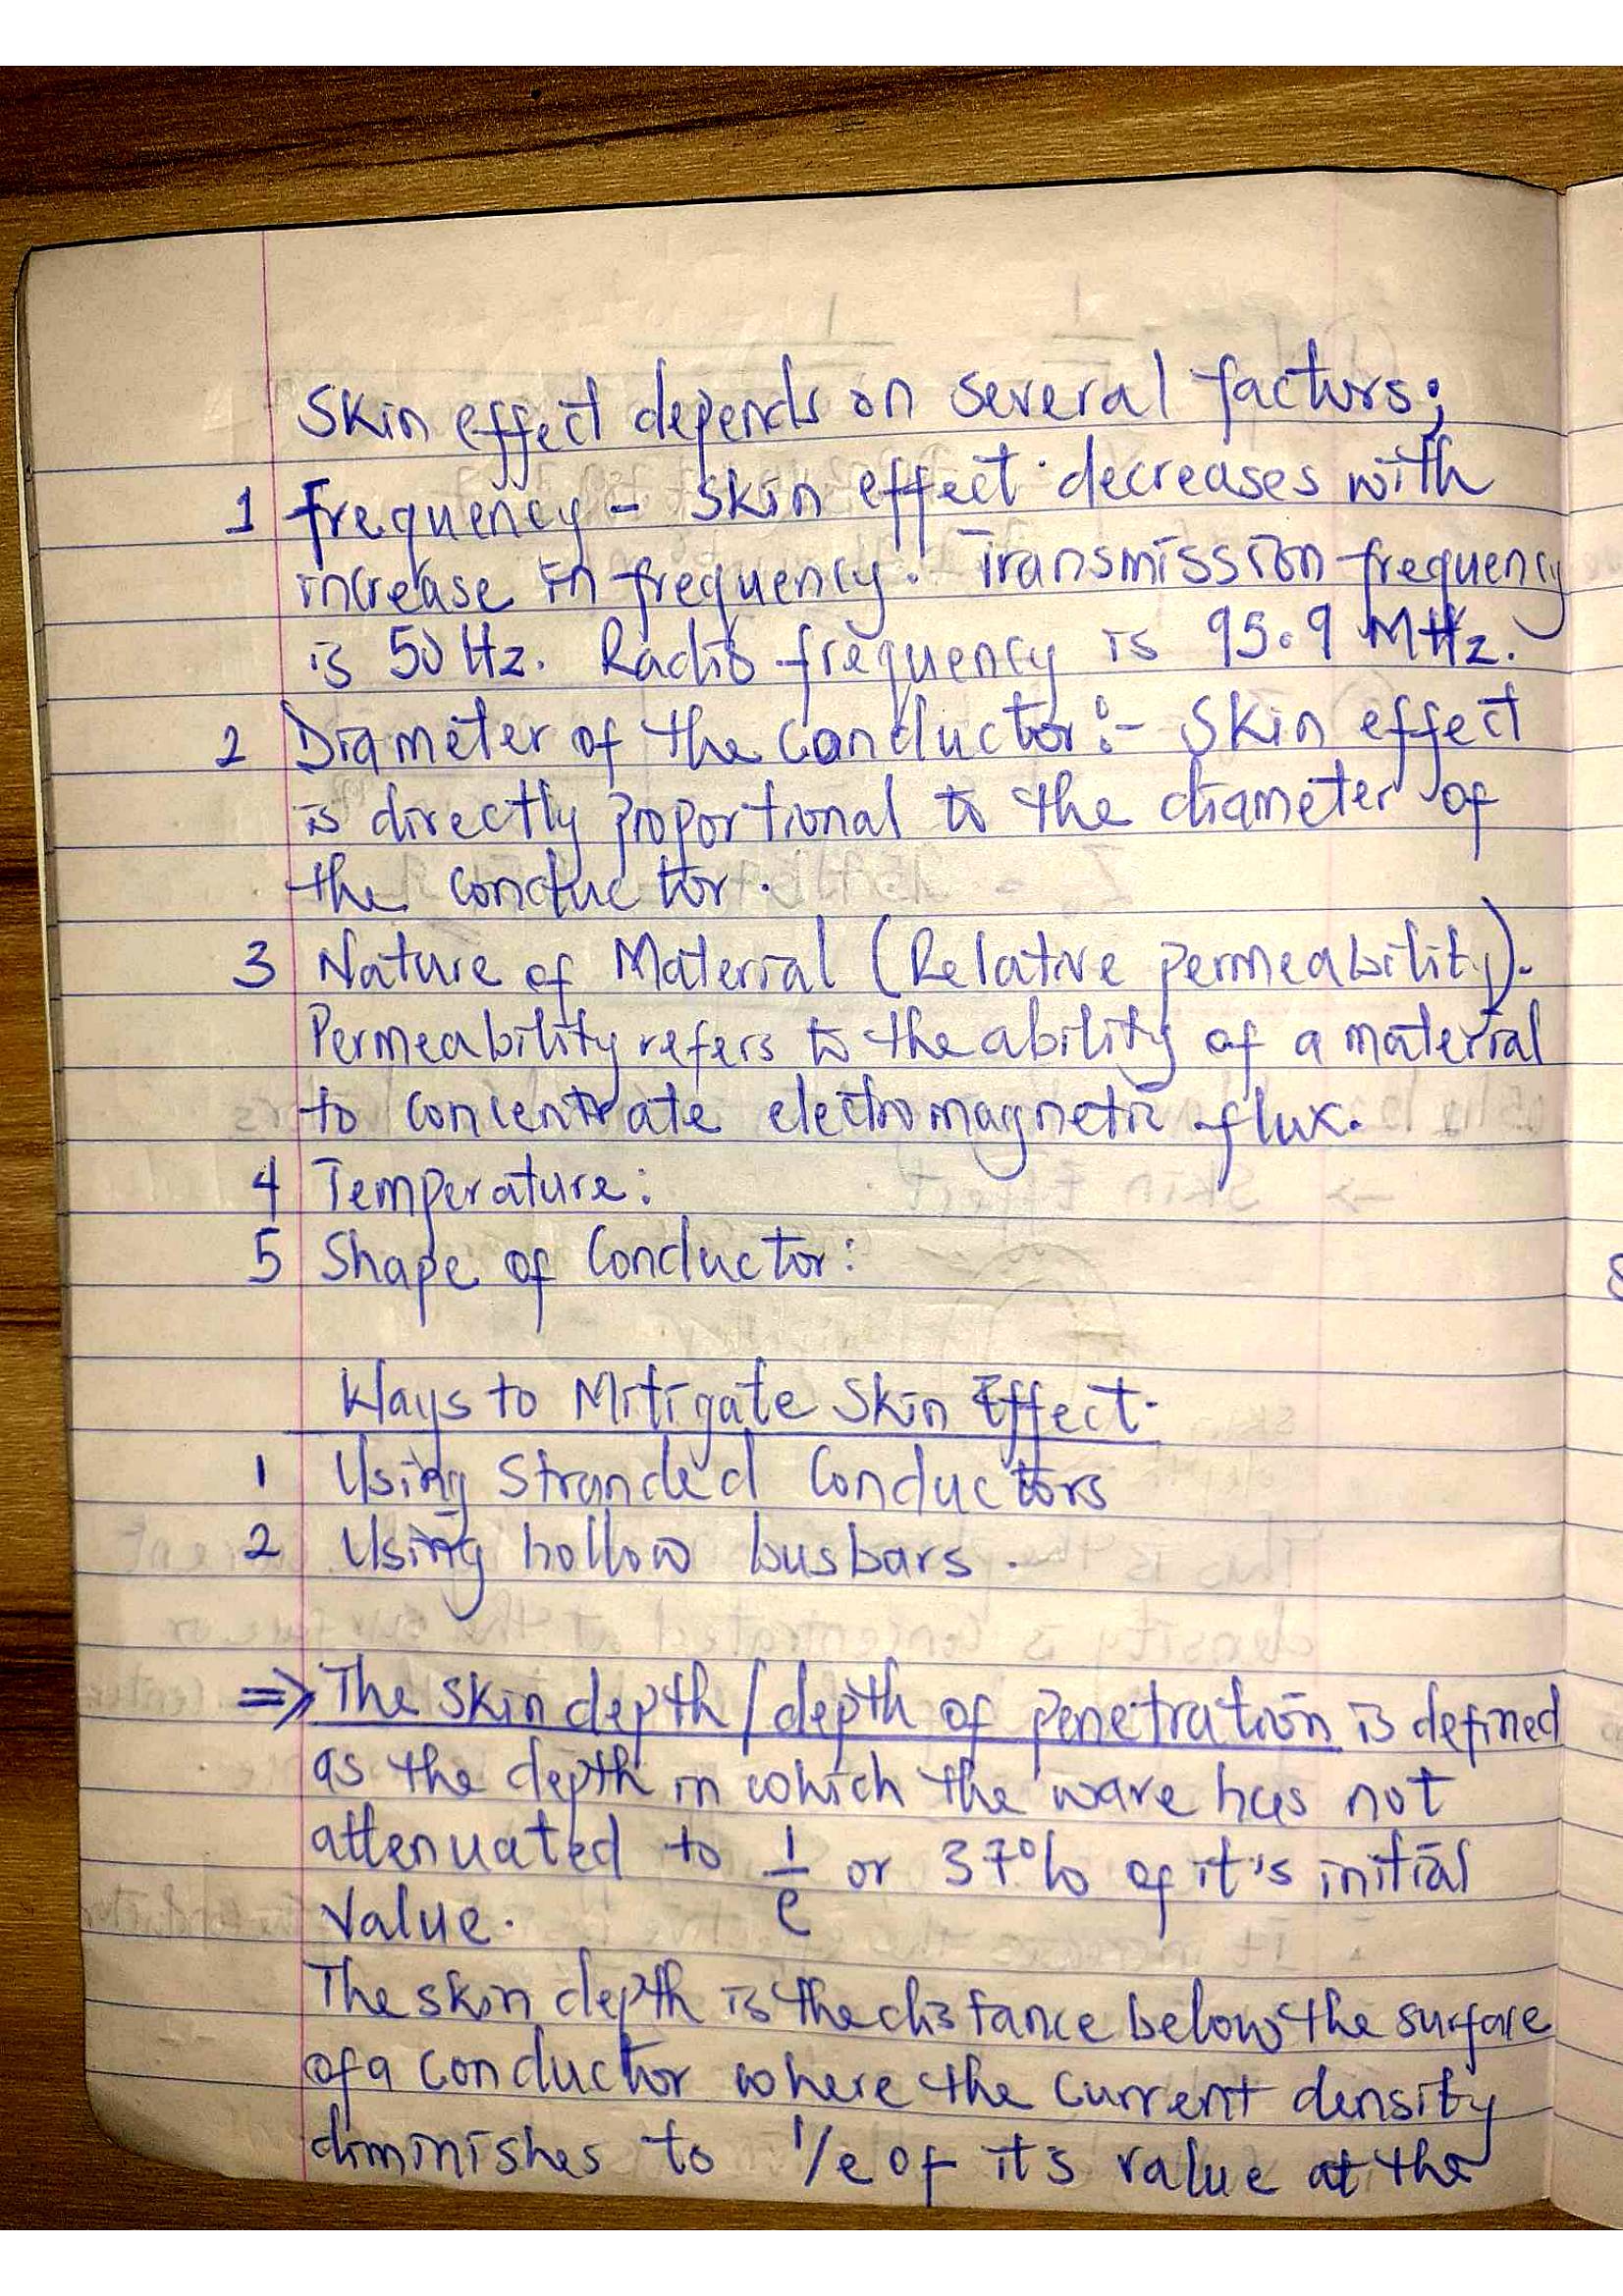 Skin effect depends on several factors;
1 frequency - skin effect decreases with
increase in frequency. Transmission frequency
is 50 Hz. Radio frequency is 95.9 MHz.
2 Diameter of the conductor:- Skin effect
is directly proportional to the diameter of
the conductor.
3 Nature of Material (Relative permeability).
Permeability refers to the ability of a material
to concentrate electromagnetic flux.
4 Temperature:
5 Shape of Conductor:
Ways to Mitigate Skin Effect.
1 Using Stranded Conductors
2 Using hollow busbars.
=> The skin depth / depth of penetration is defined
as the depth in which the wave has not
attenuated to 1/e or 37% of it's initial
value.
The skin depth is the distance below the surface
of a conductor where the current density
diminishes to 1/e of its value at the